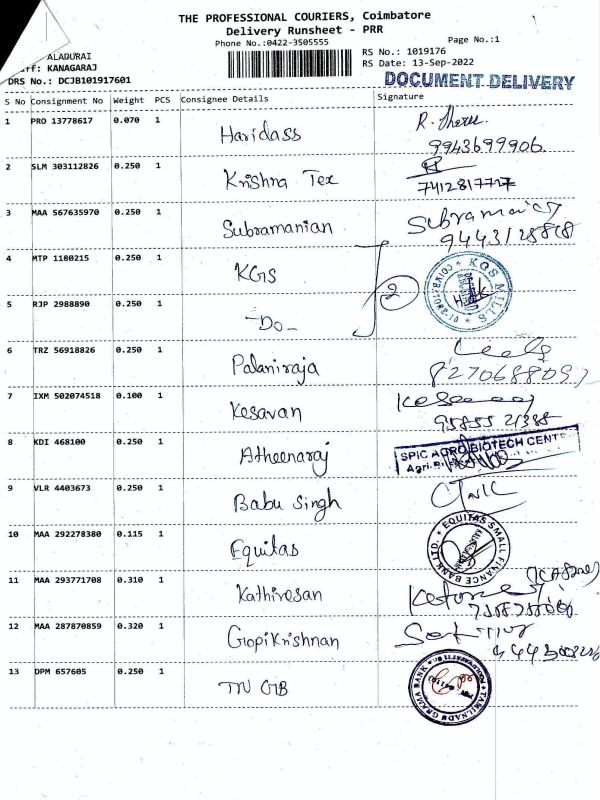 THE PROFESSIONAL COURIERS, Coimbatore
Delivery Runsheet - PRR
Phone No.:0422-3505555
Page No.:1
RS No.: 1019176
RS Date: 13-Sep-2022
ALADURAI
KANAGARAJ
DRS No.: DCJB101917601
DOCUMENT DELIVERY
S No Consignment No Weight PCS Consignee Details Signature
1 PRO 13778617 0.070 1 Haridass
9943699906.
2 SLM 303112826 0.250 1 Krishna Tex
7412817717
3 MAA 567635970 0.250 1 Subramanian
9443128868
4 MTP 1180215 0.250 1 KGS
2
KGS MILLS
5 RJP 2988890 0.250 1 -Do-
6 TRZ 56918826 0.250 1 Palaniraja
8270688097
7 IXM 502074518 0.100 1 Kesavan
95855 21388
8 KDI 468100 0.250 1 Atheenaraj
SPIC AGRO BIOTECH CENT
9 VLR 4403673 0.250 1 Babu Singh
10 MAA 292278380 0.115 1 Equitas
EQUITAS SMALL FINANCE BANK LTD.
11 MAA 293771708 0.310 1 Kathiresan
12 MAA 287870859 0.320 1 Gopikrishnan
13 DPM 657605 0.250 1 TN GB
TAMILNADU GRAMA BANK